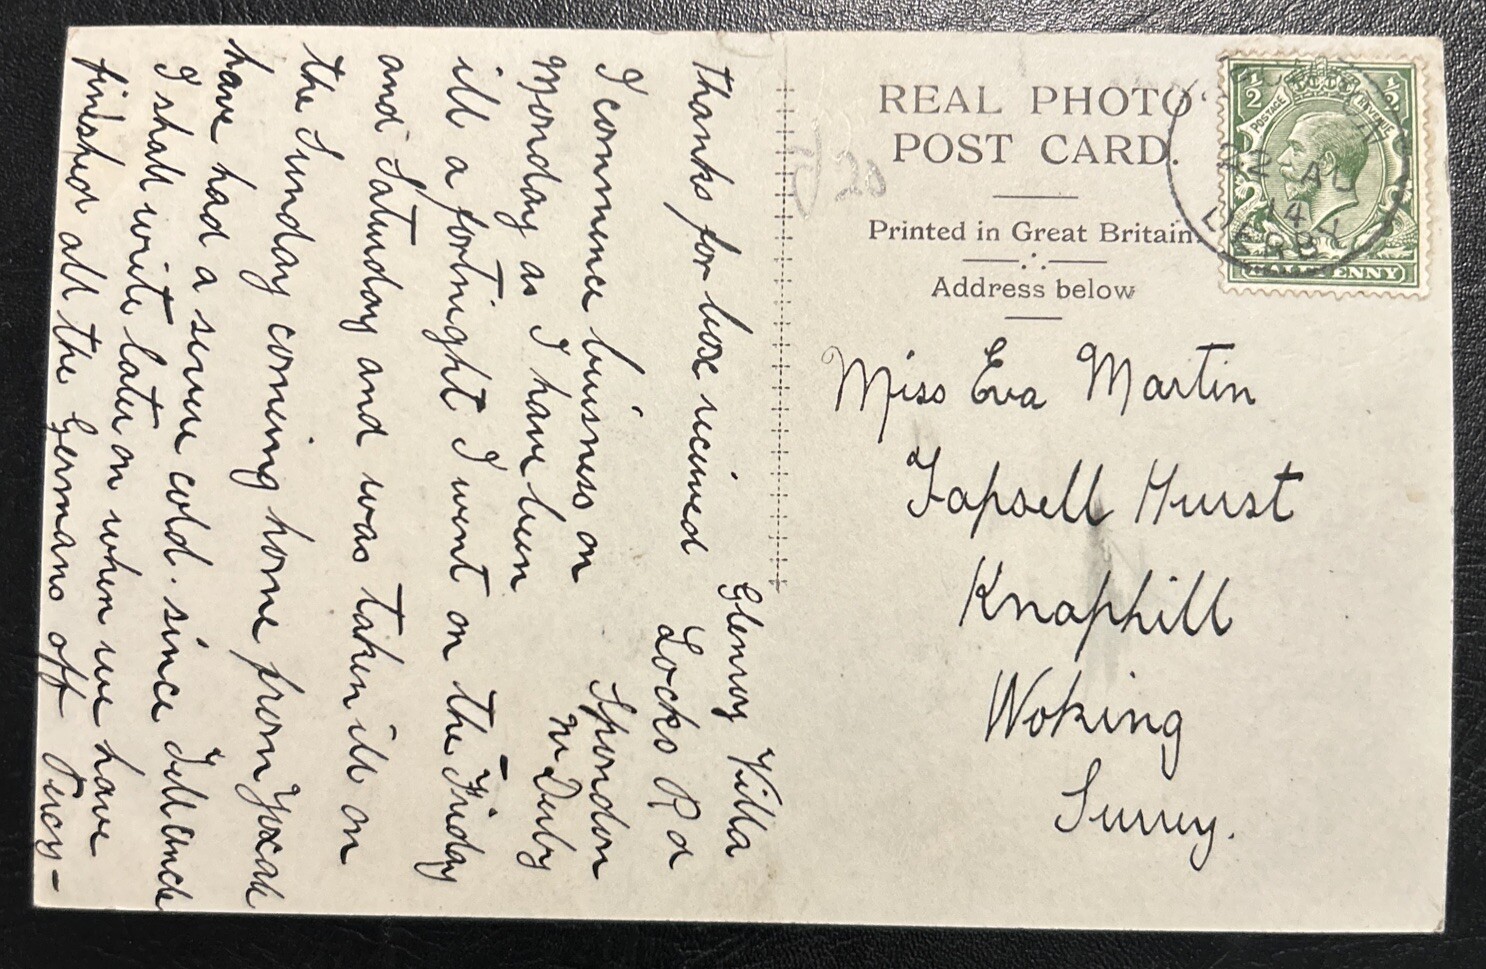 Glenroy Villa
Locks Rd
Spondon
Nr Derby
Thanks for box received
I commence buisness on
Monday as I have been
ill a fortnight I went on the Friday
and Saturday and was taken ill on
the Sunday coming home from Yoxall
have had a severe cold. since
I shall write later on when we have
finished all the Germans off Percy-
REAL PHOTO
POST CARD.
Printed in Great Britain.
Address below
Miss Eva Martin
Tapsell Hurst
Knaphill
Woking
Surrey.
½ ½
POSTAGE REVENUE
HALFPENNY
22 AU
14
DERB